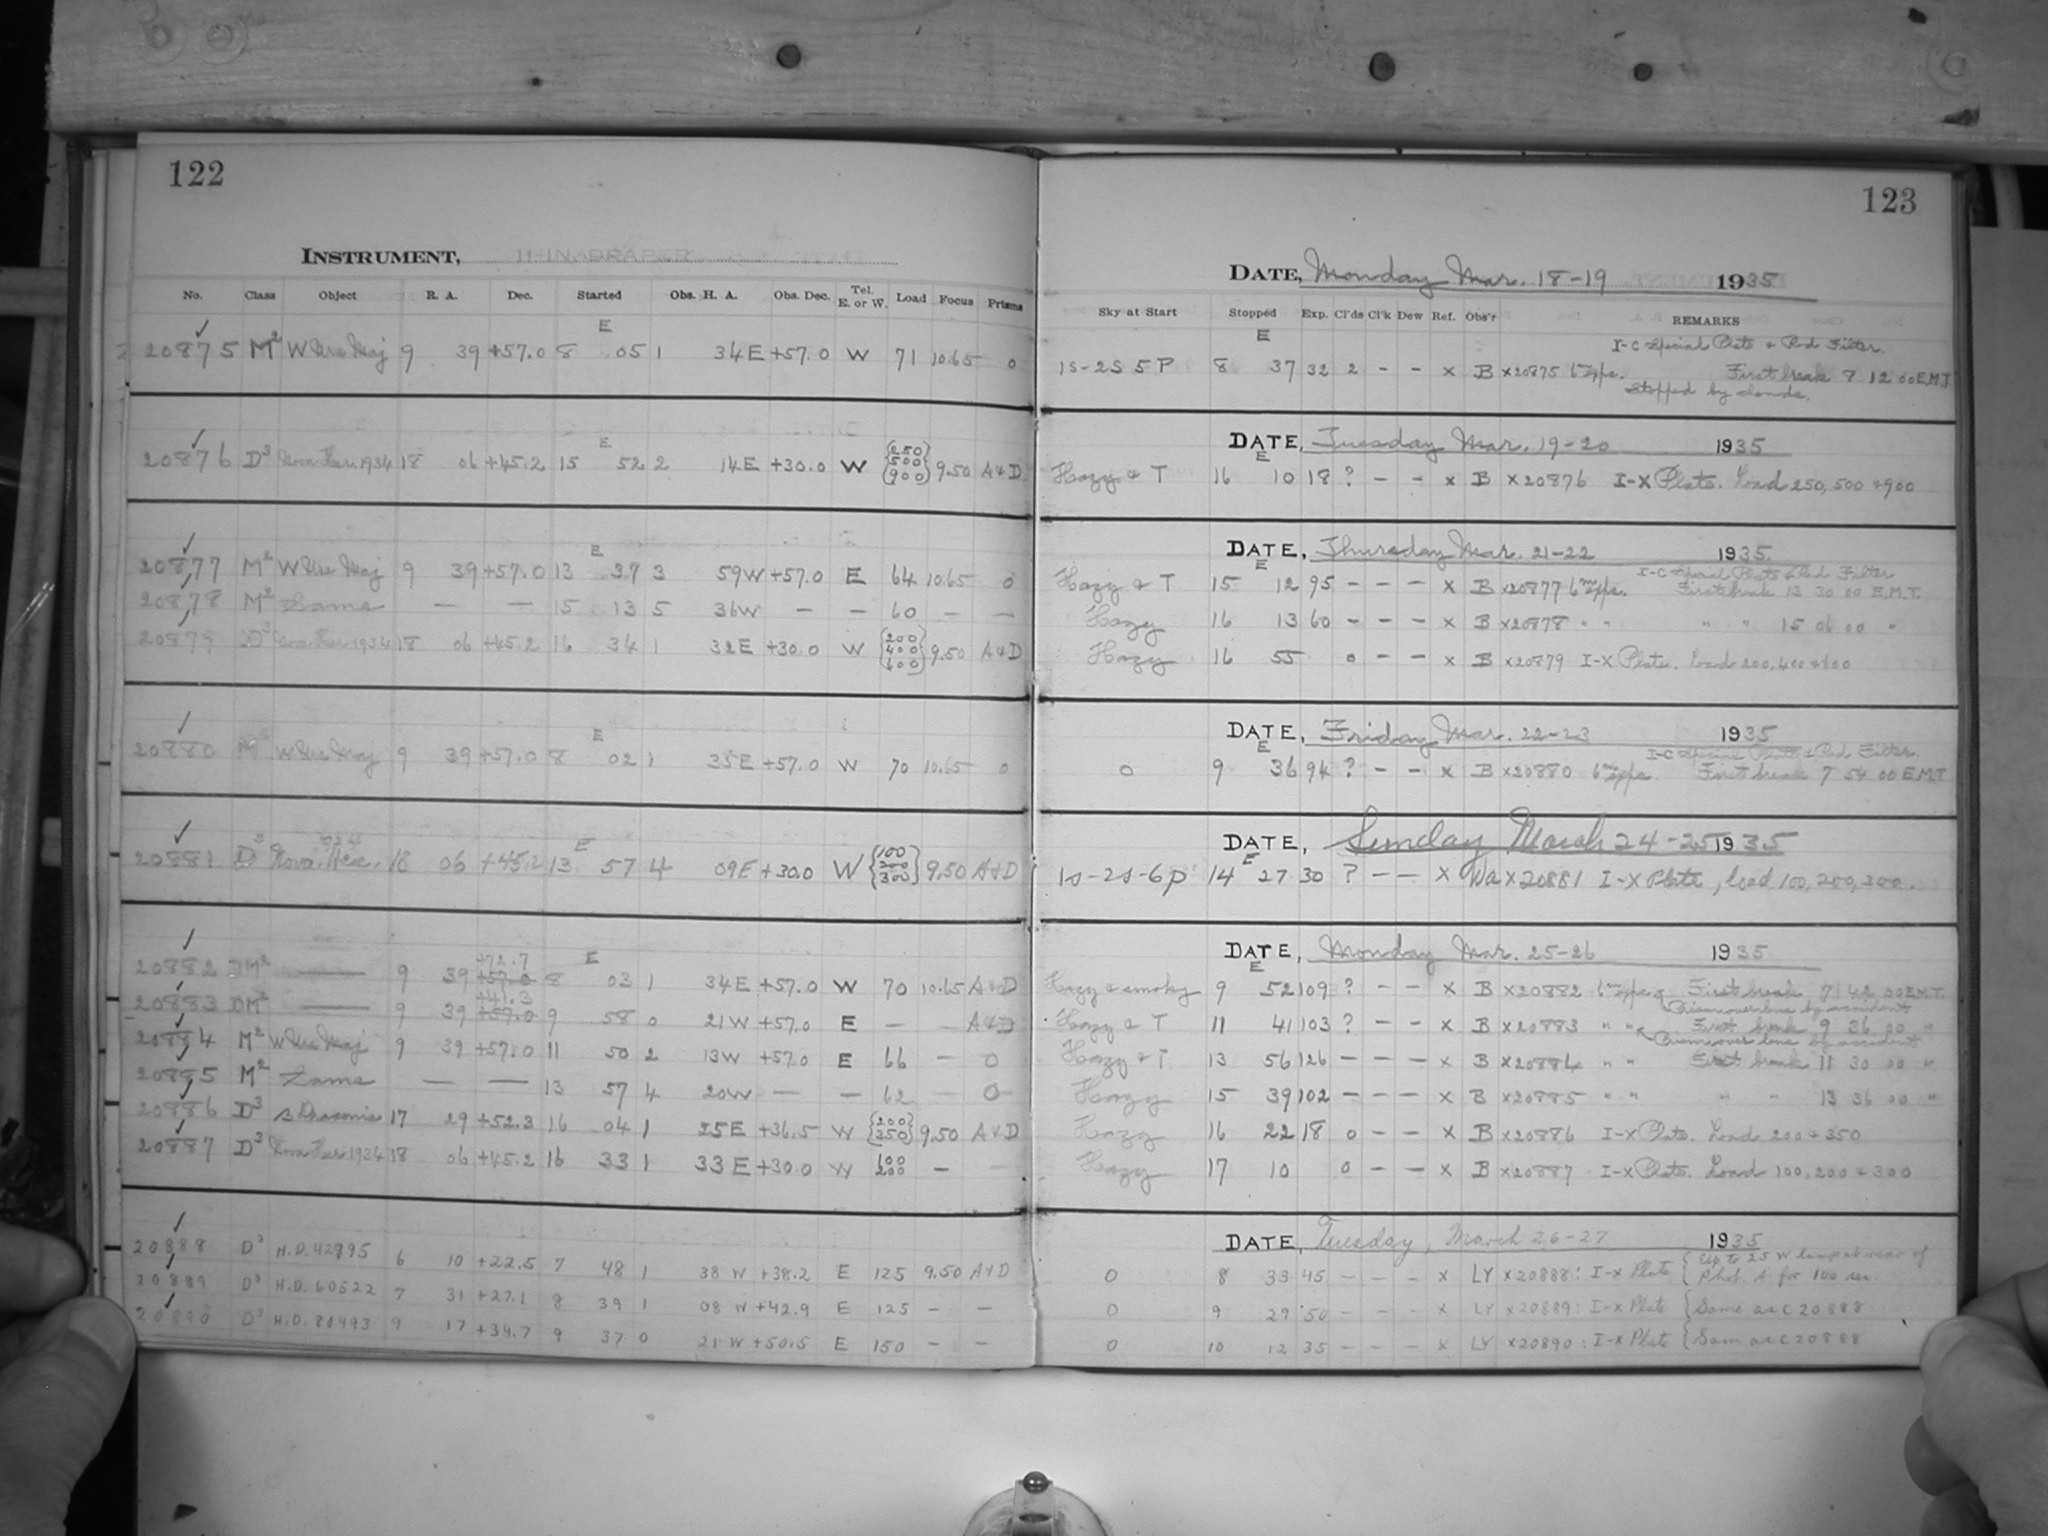 122
INSTRUMENT, 11-IN. DRAPER
No. Class Object R. A. Dec. Started Obs. H. A. Obs. Dec. Tel. E. or W. Load Focus Prisms
E
20875 M² W Urs Maj 9 39 +57.0 8 05 1 34 E +57.0 W 71 10.65 0
E
20876 D³ Nova Her. 1934 18 06 +45.2 15 52 2 14 E +30.0 W {250 500 900} 9.50 A+D
E
20877 M² W Urs Maj 9 39 +57.0 13 37 3 59 W +57.0 E 64 10.65 0
20878 M² Same — — 15 13 5 36 W — — 60 — —
20879 D³ Nova Her. 1934 18 06 +45.2 16 34 1 32 E +30.0 W {200 400 600} 9.50 A+D
E
20880 M² W Urs Maj 9 39 +57.0 8 02 1 35 E +57.0 W 70 10.65 0
E
20881 D³ Nova Her. 18 06 +45.2 13 57 4 09 E +30.0 W {100 200 300} 9.50 A+D
+72.7 E
20882 DM² — 9 39 +57.0 8 03 1 34 E +57.0 W 70 10.65 A+D
+41.3
20883 DM² — 9 39 +57.0 9 58 0 21 W +57.0 E — — A+D
20884 M² W Urs Maj 9 39 +57.0 11 50 2 13 W +57.0 E 66 — 0
20885 M² Same — — 13 57 4 20 W — — 62 — 0
20886 D³ β Draconis 17 29 +52.3 16 04 1 25 E +36.5 W {200 350} 9.50 A+D
20887 D³ Nova Her. 1934 18 06 +45.2 16 33 1 33 E +30.0 W 100 200 — —
20888 D³ H.D. 42995 6 10 +22.5 7 48 1 38 W +38.2 E 125 9.50 A+D
20889 D³ H.D. 60522 7 31 +27.1 8 39 1 08 W +42.9 E 125 — —
20890 D³ H.D. 80493 9 17 +34.7 9 37 0 21 W +50.5 E 150 — —
123
DATE, Monday Mar. 18-19 1935
Sky at Start Stopped Exp. Cl'ds Cl'k Dew Ref. Obs'r REMARKS
E I-C Special Plate & Red Filter.
1s-2s 5P 8 37 32 2 — — x B x20875 6ᵐ exps. First break 8 12 00 E.M.T.
Stopped by clouds.
DATE, Tuesday Mar. 19-20 1935
E
Hazy & T 16 10 18 ? — — x B x20876 I-X Plate. Load 250, 500 & 900
DATE, Thursday Mar. 21-22 1935
E I-C Special Plate & Red Filter
Hazy & T 15 12 95 — — — x B x20877 6ᵐ exps. First break 13 30 00 E.M.T.
Hazy 16 13 60 — — — x B x20878 " " " " 15 06 00 "
Hazy 16 55 0 — — x B x20879 I-X Plate. Load 200, 400 & 600
DATE, Friday Mar. 22-23 1935
E I-C Special Plate & Red Filter.
0 9 36 94 ? — — x B x20880 6ᵐ exps. First break 7 54 00 E.M.T.
DATE, Sunday March 24-25 1935
E
1s-2s-6p 14 27 30 ? — — x Wa x20881 I-X Plate, load 100, 200, 300.
DATE, Monday Mar. 25-26 1935
E
Hazy & smoky 9 52 109 ? — — x B x20882 6ᵐ exps. First break 7 42 00 E.M.T.
Prism over lens by accident
Hazy & T 11 41 103 ? — — x B x20883 " " First break 9 36 00 "
Prism over lens by accident
Hazy & T 13 56 126 — — — x B x20884 " " First break 11 30 00 "
Hazy 15 39 102 — — — x B x20885 " " " " 13 36 00 "
Hazy 16 22 18 0 — — x B x20886 I-X Plate. Load 200 & 350
Hazy 17 10 0 — — x B x20887 I-X Plate. Load 100, 200 & 300
DATE, Tuesday, March 26-27 1935
0 8 33 45 — — — x LY x20888: I-X Plate {Exp to 25 W lamp at rear of Phot. A. for 100 sec.
0 9 29 50 — — — x LY x20889: I-X Plate {Same as C20888
0 10 12 35 — — — x LY x20890: I-X Plate {Same as C20888